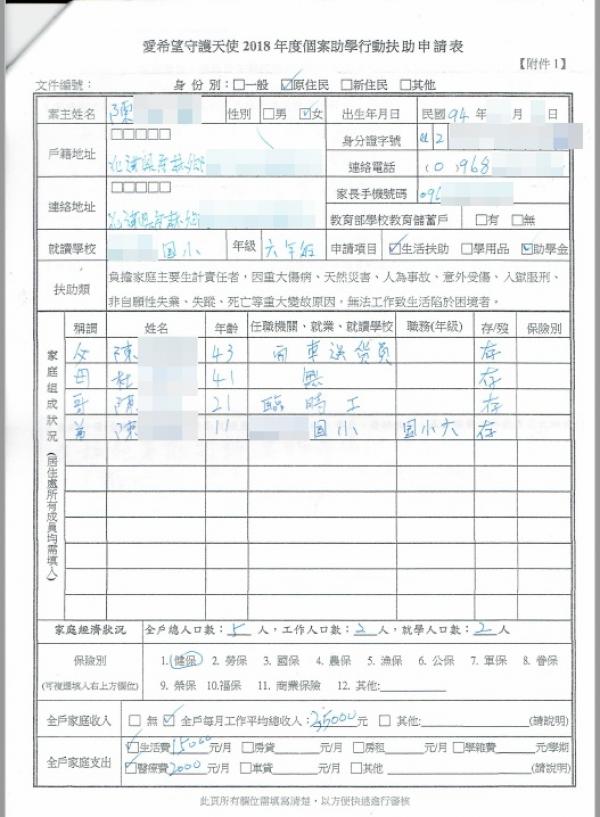 愛希望守護天使 2018 年度個案助學行動扶助申請表
【附件 1】
文件編號： 身份別：□一般 ☑原住民 □新住民 □其他
案主姓名 陳 性別 □男 ☑女 出生年月日 民國 94 年 月 日
戶籍地址 □□□□□ 身分證字號 2
連絡電話 (0)968
連絡地址 □□□□□ 家長手機號碼 096
教育部學校教育儲蓄戶 □有 ☑無
就讀學校 國小 年級 六年級 申請項目 ☑生活扶助 □學用品 ☑助學金
扶助類 負擔家庭主要生計責任者，因重大傷病、天然災害、人為事故、意外受傷、入獄服刑、
非自願性失業、失蹤、死亡等重大變故原因，無法工作致生活陷於困境者。
家庭組成狀況(居住處所有成員均需填入)
稱謂 姓名 年齡 任職機關、就業、就讀學校 職務(年級) 存/歿 保險別
父 陳 43 貨車送貨員 存
母 杜 41 無 存
哥 陳 21 臨時工 存
弟 陳 11 國小 國小六 存
家庭經濟狀況 全戶總人口數：5 人，工作人口數：2 人，就學人口數：2 人
保險別 1.健保 2. 勞保 3. 國保 4. 農保 5. 漁保 6. 公保 7. 軍保 8. 眷保
(可複選填入右上方欄位) 9. 榮保 10.福保 11. 商業保險 12. 其他:
全戶家庭收入 □ 無 ☑ 全戶每月工作平均總收入：35000元 □ 其他: (請說明)
全戶家庭支出 ☑生活費15000元/月 □房貸 元/月 □房租 元/月 □學雜費 元/學期
☑醫療費2000元/月 □車貸 元/月 □其他 (請說明)
此頁所有欄位需填寫清楚，以方便快速進行審核